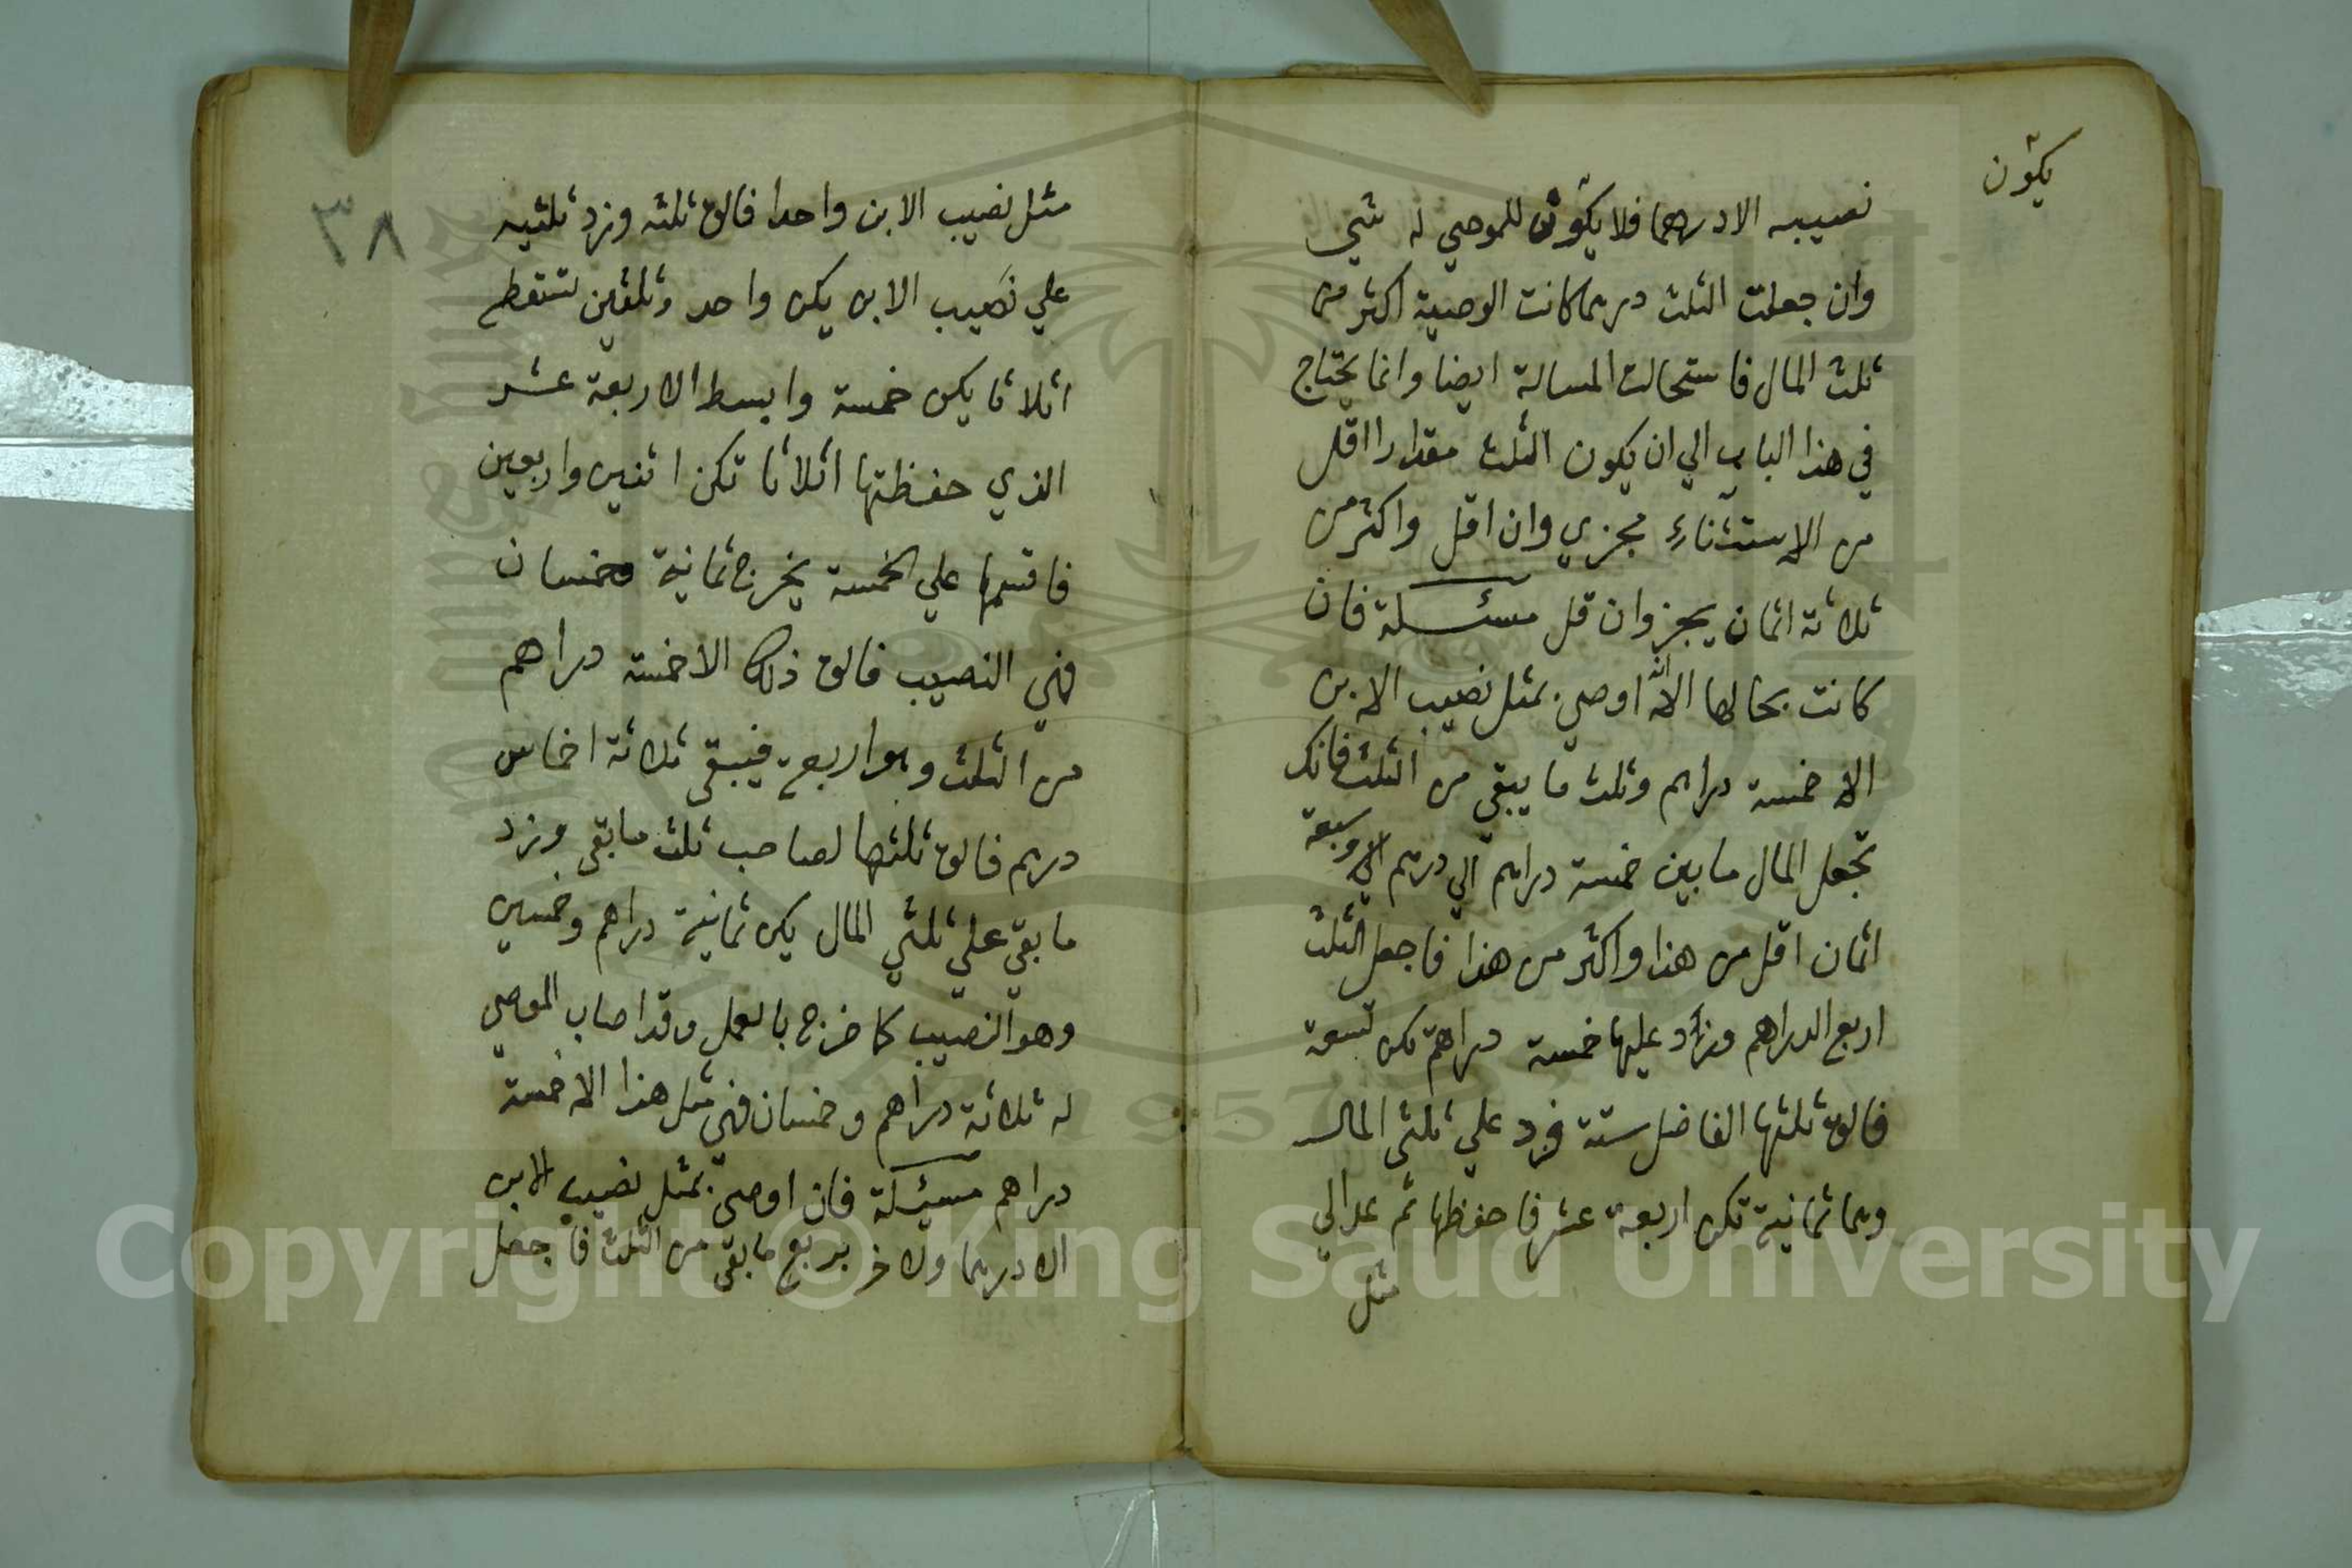 يكون
نصيبه الا درهما فلا يكون للموصي له شي
وان جعلت الثلث درهما كانت الوصية اكثر من
ثلث المال فاستحالت المسالة ايضا وانما يحتاج
في هذا الباب الي ان يكون الثلث مقدارا اقل
من الاستثناء مجزي وان اقل واكثر من
ثلاثة اثمان يجز وان قل مسئلة فان
كانت بحالها الا انه اوصي بمثل نصيب الابن
الا خمسة دراهم وثلث ما يبقي من الثلث فانك
تجعل المال ما بين خمسة دراهم الي درهم الي وسبعة
اثمان اقل من هذا واكثر من هذا فاجعل الثلث
اربع الدراهم وزاد عليها خمسة دراهم تكن تسعة
فالق ثلثها الفاضل ستة فزد علي ثلثي المال
وهما ثمانية تكن اربعة عشر فاحفظها ثم عد الي
مثل
٣٨
مثل نصيب الابن واحدا فالق ثلثه وزد ثلثيه
علي نصيب الابن يكن واحد وثلثين تستقطع
اثلاثا يكن خمسة وابسط الاربعة عشر
الذي حفظتها اثلاثا تكن اثنين واربعين
فاقسمها علي الخمسة يخرج ثمانية وخمسان
فهي النصيب فالق ذلك الا خمسة دراهم
من الثلث وهو اربعة فيبقي ثلاثة اخماس
درهم فالق ثلثها لصاحب ثلث ما بقي وزد
ما بقي علي ثلثي المال يكن ثمانية دراهم وخمسين
وهو النصيب كما خرج بالعمل وقد اصاب الموصي
له ثلاثة دراهم وخمسان فهي مثل هذا الا خمسة
دراهم مسئلة فان اوصي بمثل نصيب الابن
الا درهما ولاخر بربع ما بقي من الثلث فاجعل
Copyright © King Saud University
1957